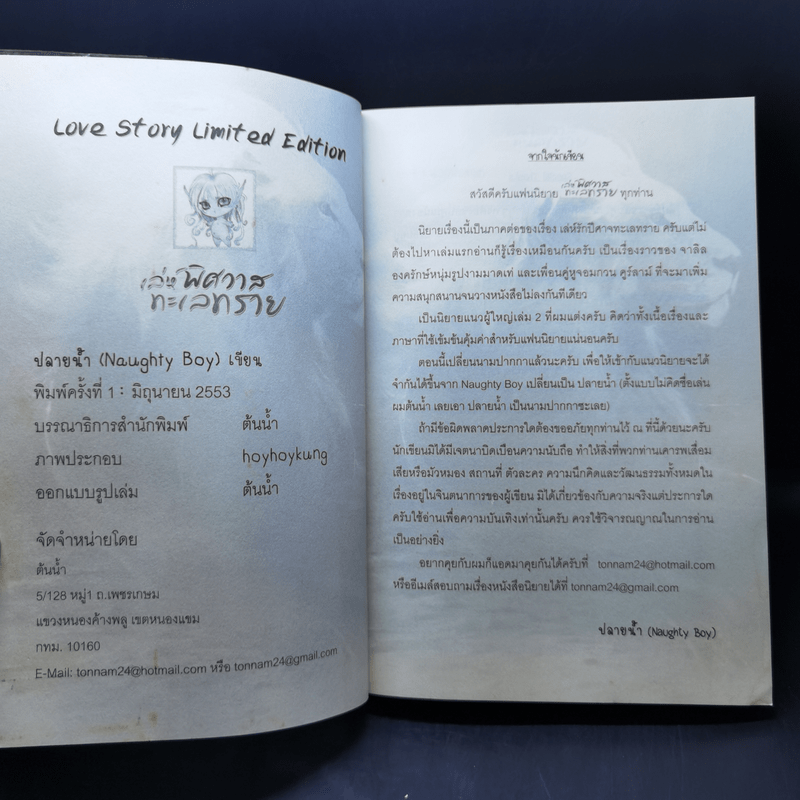 Love Story Limited Edition
เล่ห์พิศวาส
ทะเลทราย
ปลายน้ำ (Naughty Boy) เขียน
พิมพ์ครั้งที่ 1 : มิถุนายน 2553
บรรณาธิการสำนักพิมพ์ ต้นน้ำ
ภาพประกอบ hoyhoykung
ออกแบบรูปเล่ม ต้นน้ำ
จัดจำหน่ายโดย
ต้นน้ำ
5/128 หมู่1 ถ.เพชรเกษม
แขวงหนองค้างพลู เขตหนองแขม
กทม. 10160
E-Mail: tonnam24@hotmail.com หรือ tonnam24@gmail.com
จากใจนักเขียน
สวัสดีครับแฟนนิยาย เล่ห์พิศวาสทะเลทราย ทุกท่าน
นิยายเรื่องนี้เป็นภาคต่อของเรื่อง เล่ห์รักปีศาจทะเลทราย ครับแต่ไม่
ต้องไปหาเล่มแรกอ่านก็รู้เรื่องเหมือนกันครับ เป็นเรื่องราวของ จาลิล
องครักษ์หนุ่มรูปงามมาดเท่ และเพื่อนคู่หูจอมกวน คูร์ลาม์ ที่จะมาเพิ่ม
ความสนุกสนานจนวางหนังสือไม่ลงกันทีเดียว
เป็นนิยายแนวผู้ใหญ่เล่ม 2 ที่ผมแต่งครับ คิดว่าทั้งเนื้อเรื่องและ
ภาษาที่ใช้เข้มข้นคุ้มค่าสำหรับแฟนนิยายแน่นอนครับ
ตอนนี้เปลี่ยนนามปากกาแล้วนะครับ เพื่อให้เข้ากับแนวนิยายจะได้
จำกันได้ขึ้นจาก Naughty Boy เปลี่ยนเป็น ปลายน้ำ (ตั้งแบบไม่คิดชื่อเล่น
ผมต้นน้ำ เลยเอา ปลายน้ำ เป็นนามปากกาซะเลย)
ถ้ามีข้อผิดพลาดประการใดต้องขออภัยทุกท่านไว้ ณ ที่นี้ด้วยนะครับ
นักเขียนมิได้มีเจตนาบิดเบือนความนับถือ ทำให้สิ่งที่พวกท่านเคารพเสื่อม
เสียหรือมัวหมอง สถานที่ ตัวละคร ความนึกคิดและวัฒนธรรมทั้งหมดใน
เรื่องอยู่ในจินตนาการของผู้เขียน มิได้เกี่ยวข้องกับความจริงแต่ประการใด
ครับใช้อ่านเพื่อความบันเทิงเท่านั้นครับ ควรใช้วิจารณญาณในการอ่าน
เป็นอย่างยิ่ง
อยากคุยกับผมก็แอดมาคุยกันได้ครับที่ tonnam24@hotmail.com
หรืออีเมล์สอบถามเรื่องหนังสือนิยายได้ที่ tonnam24@gmail.com
ปลายน้ำ (Naughty Boy)